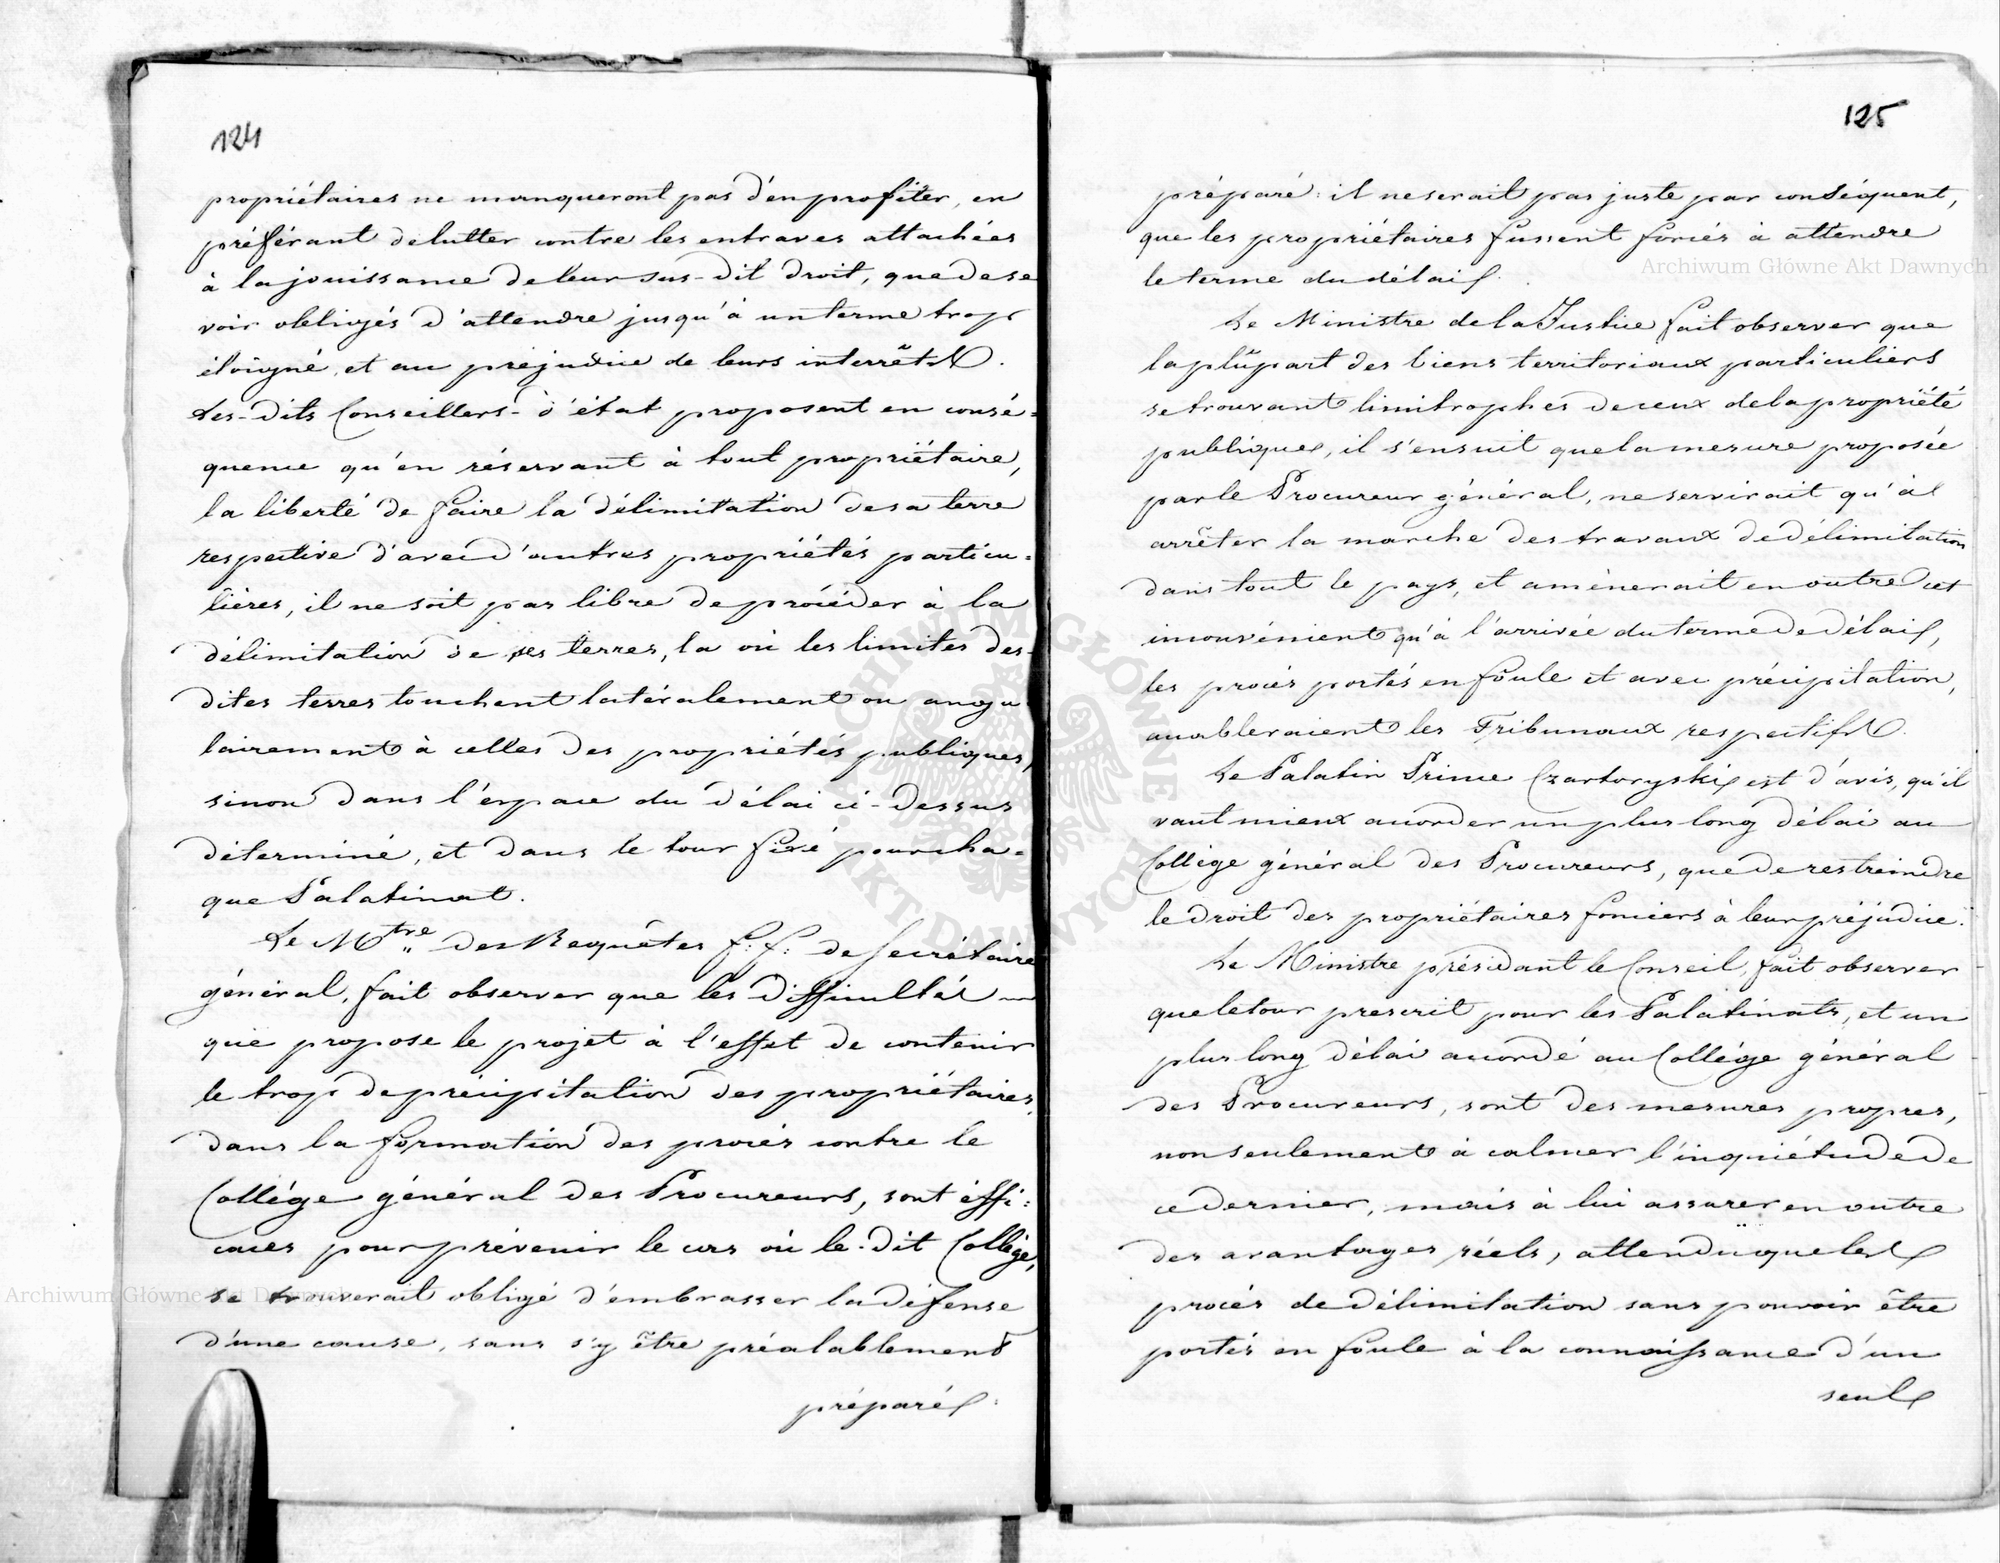 124
propriétaires ne manqueront pas d'en profiter, en
préférant de lutter contre les entraves attachées
à la jouissance de leur sus-dit droit, que de se
voir obligés d'attendre jusqu'à un terme trop
éloigné, et au préjudice de leurs interrêts.
Les-dits Conseillers-d'état proposent en consé=
quence qu'en réservant à tout propriétaire,
la liberté de faire la délimitation de sa terre
respective d'avec d'autres propriétés particu=
lières, il ne soit pas libre de procéder à la
délimitation de ses terres, la où les limites des-
dites terres touchent latéralement ou angu
lairement à celles des propriétés publiques,
sinon dans l'espace du délai ci-dessus
déterminé, et dans le tour fixé pour cha=
que Palatinat.
Le Mtre des Requêtes f: f: de Secrétaire
général, fait observer que les difficultés
que propose le projet à l'effet de contenir
le trop de précipitation des propriétaires,
dans la formation des procés contre le
Collège général des Procureurs, sont éffi:
caces pour prévenir le cas où le-dit Collège,
se trouverait obligé d'embrasser la défense
d'une cause, sans s'y être préalablement
préparé.
125
préparé: il ne serait pas juste par conséquent,
que les propriétaires fussent forcés à attendre
le terme du délai.
Le Ministre de la Justice fait observer que
la plûpart des biens territoriaux particuliers
se trouvant limitrophes de ceux de la propriété
publique, il s'ensuit que la mesure proposée
par le Procureur général, ne servirait qu'à
arrêter la marche des travaux de délimitation
dans tout le pays, et amènerait en outre cet
inconvénient qu'à l'arrivée du terme de délai,
les procés portés en foule et avec précipitation,
accableraient les Tribunaux respectifs.
Le Palatin Prince Czartoryski est d'avis, qu'il
vaut mieux accorder un plus long délai au
Collège général des Procureurs, que de restreindre
le droit des propriétaires fonciers à leur préjudice.
Le Ministre présidant le Conseil, fait observer
que le tour prescrit pour les Palatinats, et un
plus long délai accordé au Collége général
des Procureurs, sont des mesures propres,
non seulement à calmer l'inquiétude de
ce dernier, mais à lui assurer en outre
des avantages réels, attendu que les
procés de délimitation sans pouvoir être
portés en foule à la connaissance d'un
seul
Archiwum Główne Akt Dawnych
Archiwum Główne Akt Dawnych
ARCHIWUM GŁÓWNE AKT DAWNYCH